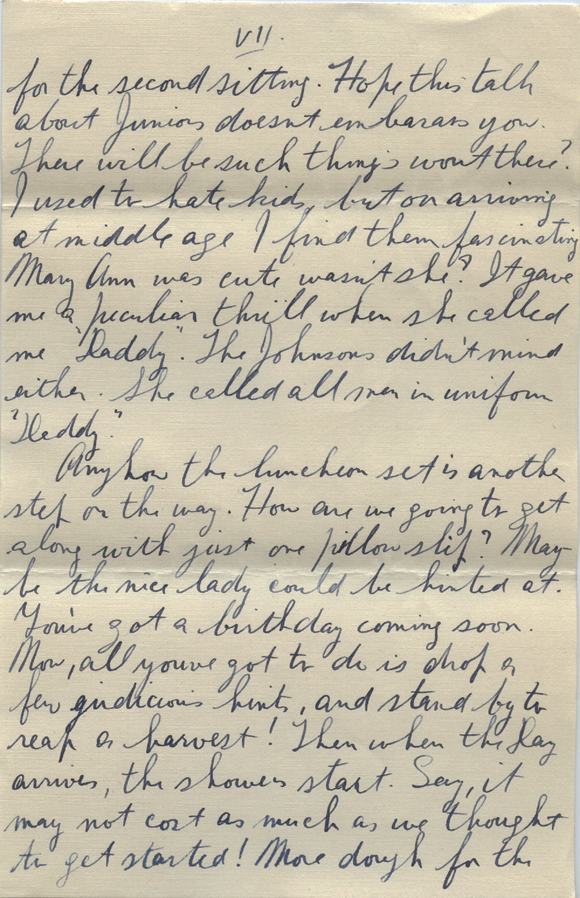 VII.
for the second sitting. Hope this talk
about Juniors doesn't embarass you.
There will be such things wont there?
I used to hate kids, but on arriving
at middle age I find them fascinating
Mary Ann was cute wasn't she? It gave
me a peculiar thrill when she called
me "Daddy". The Johnsons didn't mind
either. She called all men in uniform
"Daddy."
Anyhow the luncheon set is another
step on the way. How are we going to get
along with just one pillow slip? May-
be the nice lady could be hinted at.
You've got a birthday coming soon.
Now, all youve got to do is drop a
few judicious hints, and stand by to
reap a harvest! Then when the Day
arrives, the showers start. Say, it
may not cost as much as we thought
to get started! More dough for the